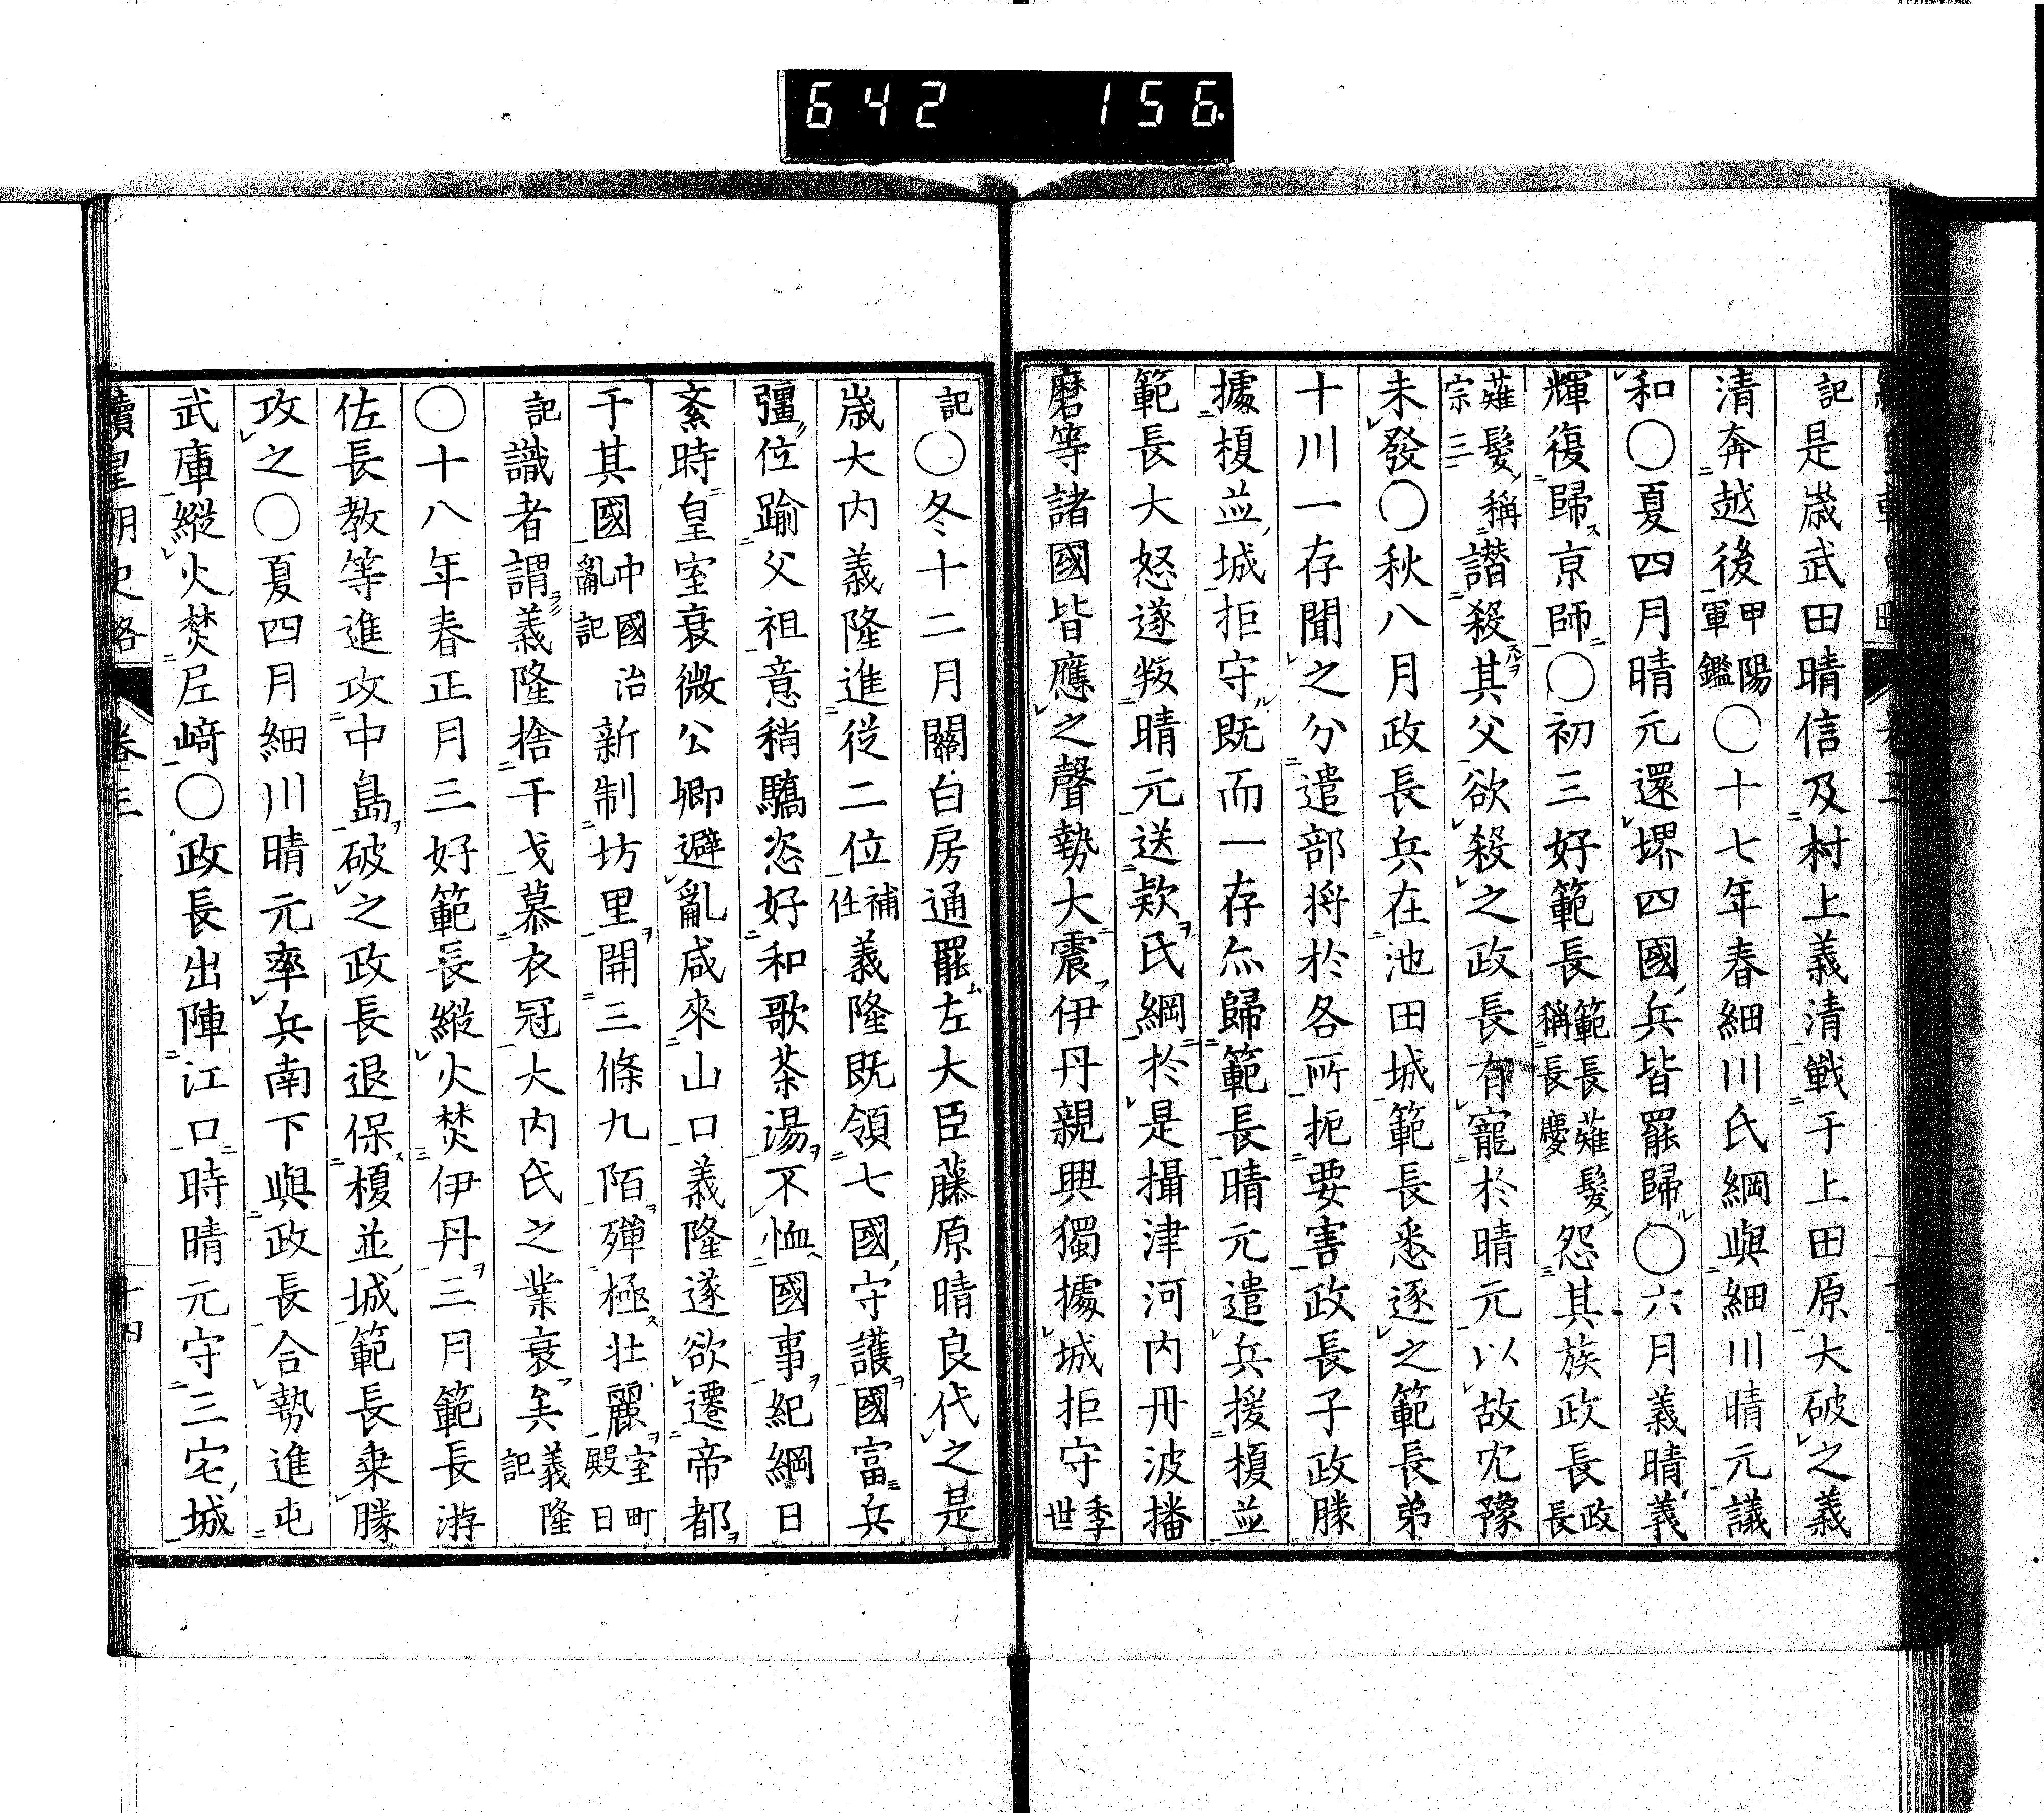 642 156.
記是歳武田晴信及村上義清戦于上田原大破之義
清奔越後甲陽軍鑑〇十七年春細川氏綱與細川晴元議
和〇夏四月晴元還堺四國兵皆罷歸〇六月義晴義
輝復歸京師〇初三好範長範長薙髮稱長慶怨其族政長政長
薙髮稱宗三譖殺其父欲殺之政長有寵於晴元以故冘豫
未發〇秋八月政長兵在池田城範長悉逐之範長弟
十川一存聞之分遣部将於各所扼要害政長子政勝
據榎並城拒守既而一存亦歸範長晴元遣兵援榎並
範長大怒遂叛晴元送欵氏綱於是攝津河内丹波播
磨等諸國皆應之聲勢大震伊丹親興獨據城拒守季世
記〇冬十二月關白房通罷左大臣藤原晴良代之是
歳大内義隆進從二位補任義隆既領七國守護國富兵
彊位踰父祖意稍驕恣好和歌茶湯不恤國事紀綱日
紊時皇室衰微公卿避亂咸來山口義隆遂欲遷帝都
于其國中國治亂記新制坊里開三條九陌殫極壮麗室町殿日
記識者謂義隆捨干戈慕衣冠大内氏之業衰矣義隆記
〇十八年春正月三好範長縱火焚伊丹三月範長游
佐長教等進攻中島破之政長退保榎並城範長乗勝
攻之〇夏四月細川晴元率兵南下與政長合勢進屯
武庫縱火焚尼﨑〇政長出陣江口時晴元守三宅城
續皇朝史略 卷三 十四